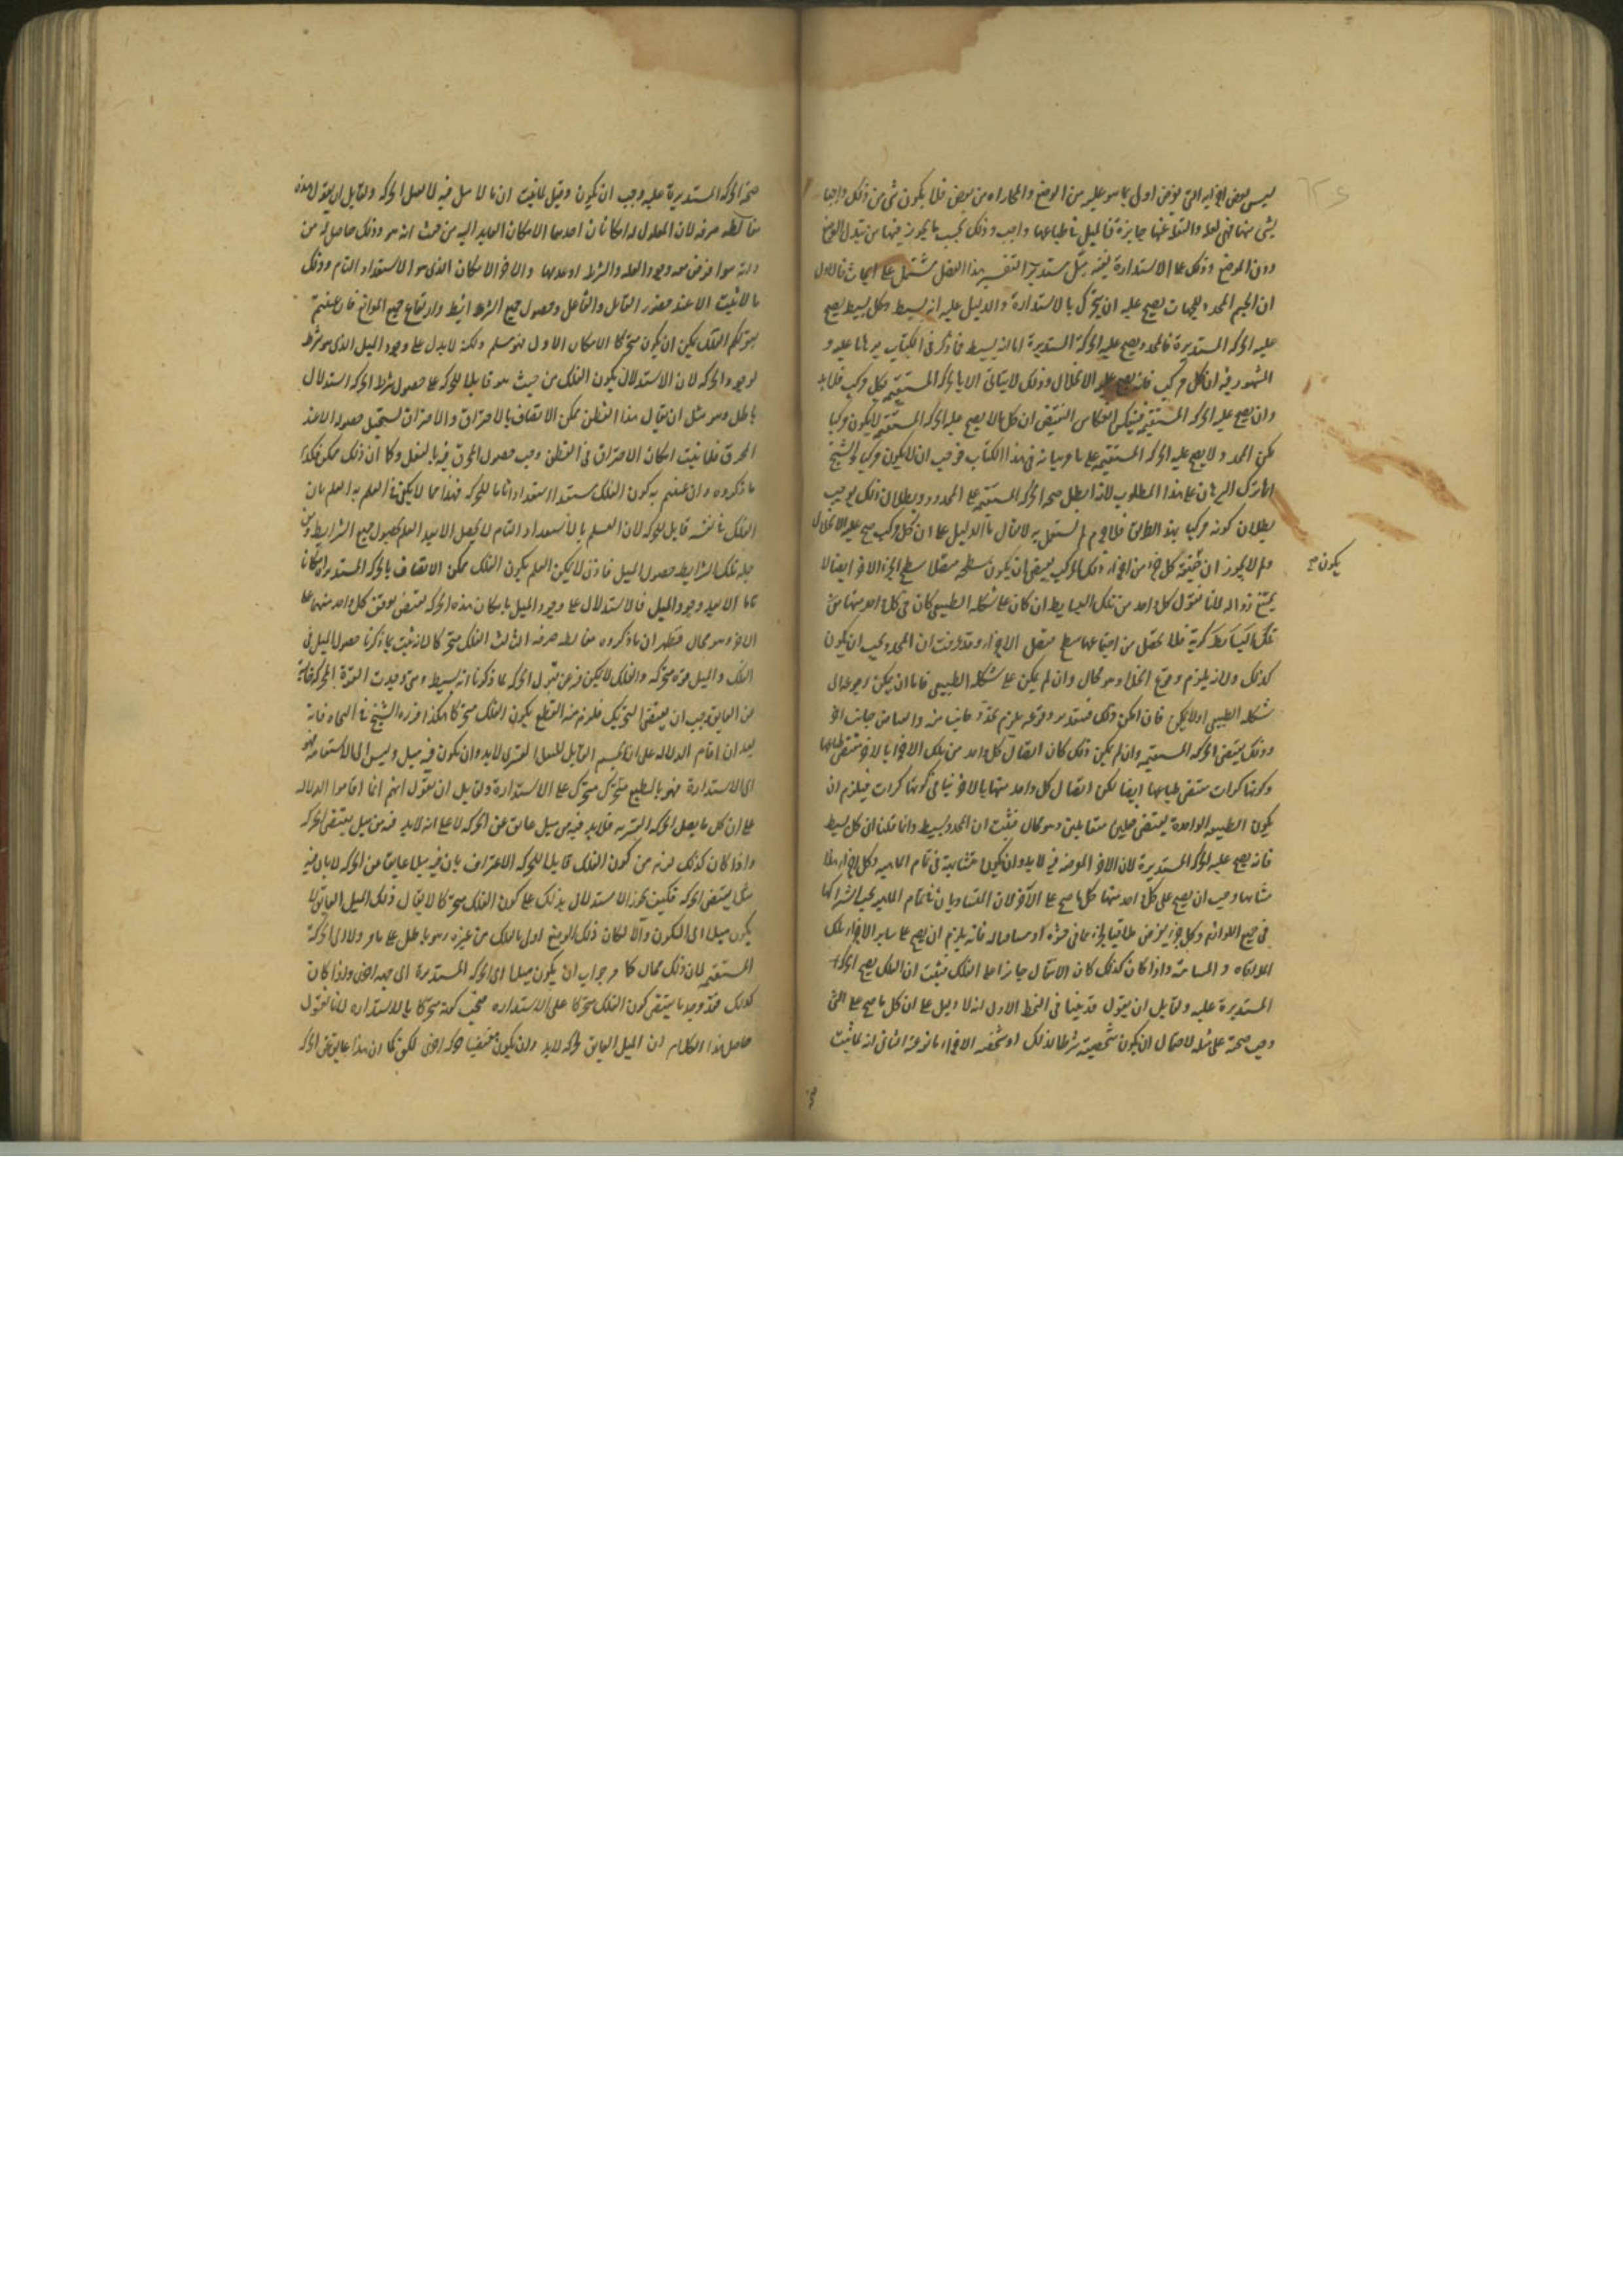 ليس بعض اجزايه التى يفرض اولى بما هو عليه من الوضع والمحاذاة من بعض فلا يكون شى من ذلك واجبا
لشى منها فهى لعلة والنقلة عنها جايزة فالميل فى طباعها واجب وذلك بحسب ما يجوز فيها من تبدل الوضع
دون الموضع وذلك على الاستدارة ففيه ميل مستدير التفسير هذا الفصل مشتمل على ابحاث فالاول
ان الجسم المحدد للجهات يصح عليه ان يتحرك بالاستدارة والدليل عليه انه بسيط وكل بسيط يصح
عليه الحركة المستديرة فالمحدد يصح عليه الحركة المستديرة اما انه بسيط فما ذكر فى الكتاب برهانا عليه و
المشهور فيه ان كل مركب فانه يصح عليه الانحلال وذلك لا يتاتى الا بالحركة المستقيمة فكل مركب فلا بد
وان يصح عليه الحركة المستقيمة فينعكس انعكاس النقيض ان كل ما لا يصح عليه الحركة المستقيمة لا يكون مركبا
لكن المحدد لا يصح عليه الحركة المستقيمة على ما مر بيانه فى هذا الكتاب فوجب ان لا يكون مركبا والشيخ
انما ترك البرهان على هذا المطلوب لانه ابطل صحة الحركة المستقيمة على المحدد وبطلان ذلك يوجب
بطلان كونه مركبا بهذا الطريق فلا جرم لم يستعمل به لا يقال ما الدليل على ان كل مركب يصح عليه الانحلال
يكون صح
ولم لا يجوز ان طبيعة كل جزء من اجزاء ذلك المركب يقتضى ان يكون سطحه متصلا بسطح الجزء الاخر اتصالا
يمتنع زواله لانا نقول كل واحد من تلك البسايط ان كان على شكله الطبيعى كان كل واحد منها من
تلك البسايط كرية فلا يحصل من اجتماعها سطح متصل الاجزاء وقد عرفت ان المحدد يجب ان يكون
كذلك ولانه يلزم وقوع الخلا وهو محال وان لم يكن على شكله الطبيعى فاما ان يمكن رجوعه الى
شكله الطبيعى او لا يمكن فان امكن ذلك فبتقدير وقوعه يلزم
وذلك يقتضى الحركة المستقيمة وان لم يكن ذلك كان اتصال كل واحد من تلك الاجزا بالاخر مقتضى طباعها
وكونها كرات مقتضى طباعها ايضا لكن اتصال كل واحد منها بالاخر ينافى كونها كرات فيلزم ان
يكون الطبيعة الواحدة يقتضى فعلين متقابلين وهو محال فثبت ان المحدد بسيط وانما قلنا ان كل بسيط
فانه يصح عليه الحركة المستديرة لان الاجزا المفروضة فيه لا بد وان يكون متشابهة فى تمام الماهية وكل اجزاء هذا
شانها وجب ان يصح على كل واحد منها كل ما صح على الاخر لان المتساويان فى تمام الماهية يجب اشتراكها
فى جميع اللوازم وكل جزء يفرض ملاقيا فانه يلزم ان يصح على ساير الاجزاء تلك
الملاقاة و المسامتة واذا كان كذلك كان الانتقال جايزا على الفلك فثبت ان الفلك يصح الحركة
المستديرة عليه ولقايل ان يقول قد بينا فى النمط الاول انه لا دليل على ان كل ما صح على الشى
وجب صحته على مثله لاحتمال ان يكون شخصيته شرطا لذلك او شخصية الاخر مانعة عنه الثانى انه لما ثبت
صحة الحركة المستديرة عليه وجب ان يكون فيه ميل لما ثبت ان ما لا ميل فيه لا يقبل الحركة ولقايل ان يقول هذه
مغالطة صرفة لان المعلول له امكانان احدهما الامكان العايد اليه من حيث انه هو وذلك حاصل له من
ذاته سوا فرض معه وجود العلة والشرط او عدمها والاخر الامكان الذى هو الاستعداد التام وذلك
ما لا يثبت الا عند حضور القابل والفاعل وحصول جميع الشرايط وارتفاع جميع الموانع فان عنيتم
بقولكم الفلك يمكن ان يكون متحركا الامكان الاول فهو مسلم ولكنه لا يدل على وجود الميل الذى هو شرط
لوجود الحركة لان الاستدلال بكون الفلك من حيث هو قابلا للحركة على حصول شرط الحركة استدلال
باطل وهو مثل ان يقال هذا القطن ممكن الاتصاف بالاحتراق والاحتراق يستحيل حصوله الا عند
المحرق فلما ثبت امكان الاحتراق فى القطن وجب حصول المحرق فيه بالفعل وكما ان ذلك ممكن فكذى
ما ذكروه وان عنيتم به كون الفلك مستعدا استعدادا تاما للحركة فهذا مما لا يكفى فى العلم به العلم بان
الفلك فى نفسه قابل للحركة لان العلم بالاستعداد التام لا يحصل الا بعد العلم بحصول جميع الشرايط ومن
جملة تلك الشرايط حصول الميل فاذن لا يمكن العلم بكون الفلك ممكن الاتصاف بالحركة المستديرة امكانا
تاما الا بعد وجود الميل فالاستدلال على وجود الميل بامكان هذه الحركة يقتضى توقف كل واحد منهما على
الاخر وهو محال فظهر ان ما ذكروه مغالطة صرفة الثالث الفلك متحركا لانه ثبت بما ذكرنا حصول الميل فى
الفلك والميل قوة محركة والفلك لا يمكن
عن العايق وجب ان يقتضى التحريك فلزم منه القطع بكون الفلك متحركا هكذا قرره الشيخ فى النجاة فانه
بعد ان اقام الدلالة على ان الجسم القابل للنقل القسرى لا بد وان يكون فيه ميل وليس الى الاستقامة فهو
الى الاستدارة فهو بالطبع متحرك على الاستدارة ولقايل ان يقول انهم انما اقاموا الدلالة
على ان كل ما يقبل الحركة القسرية فلا بد فيه من ميل عايق عن الحركة لا على انه لا بد فيه من ميل يقتضى الحركة
واذا كان كذلك لزم من كون الفلك قابلا للحركة الاعتراف بان فيه ميلا عايقا عن الحركة لا بان فيه
ميل يقتضى الحركة فكيف يجوز الاستدلال بذلك على كون الفلك متحركا لا يقال ذلك الميل العايق لا
يكون ميلا الى السكون والا لكان ذلك الوضع اولى بالفلك من غيره وهو باطل على ما مر ولا الى الحركة
المستقيمة لان ذلك محال كما مر جوابه ان يكون ميلا الى الحركة المستديرة الى جهة اخرى واذا كان
كذلك فقد وجد ما يقتضى كون الفلك متحركا على الاستدارة فيجب كونه متحركا بالاستدارة لانا نقول
حاصل هذا الكلام ان الميل العايق عن حركة لا بد وان يكون مقتضيا حركة اخرى لكن كما ان هذا عايق عن الحركة